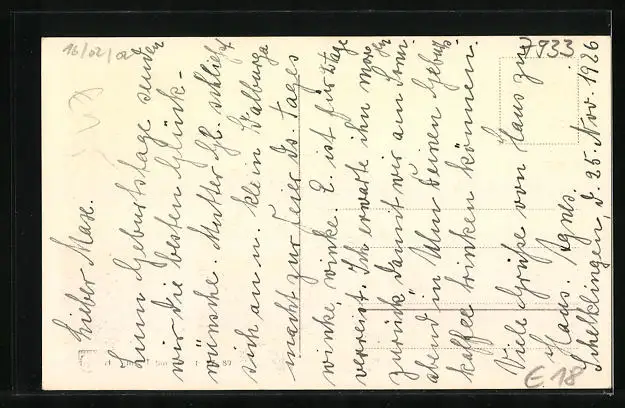 Lieber Max.
Zum Geburtstage senden
wir die besten Glück-
wünsche. Mutter schließt
sich an u. klein Walburga
macht zur Feier ds. Tages
winke, winke. E. ist für 2 Tage
verreist. Ich erwarte ihn morgen
zurück damit wir am Sonn-
abend in Ulm Deinen Geburts-
kaffee trinken können.
Viele Grüße von Haus zu
Haus. Agnes.
Schelklingen, d. 25. Nov. 1926
16/02/02
1933
E 18